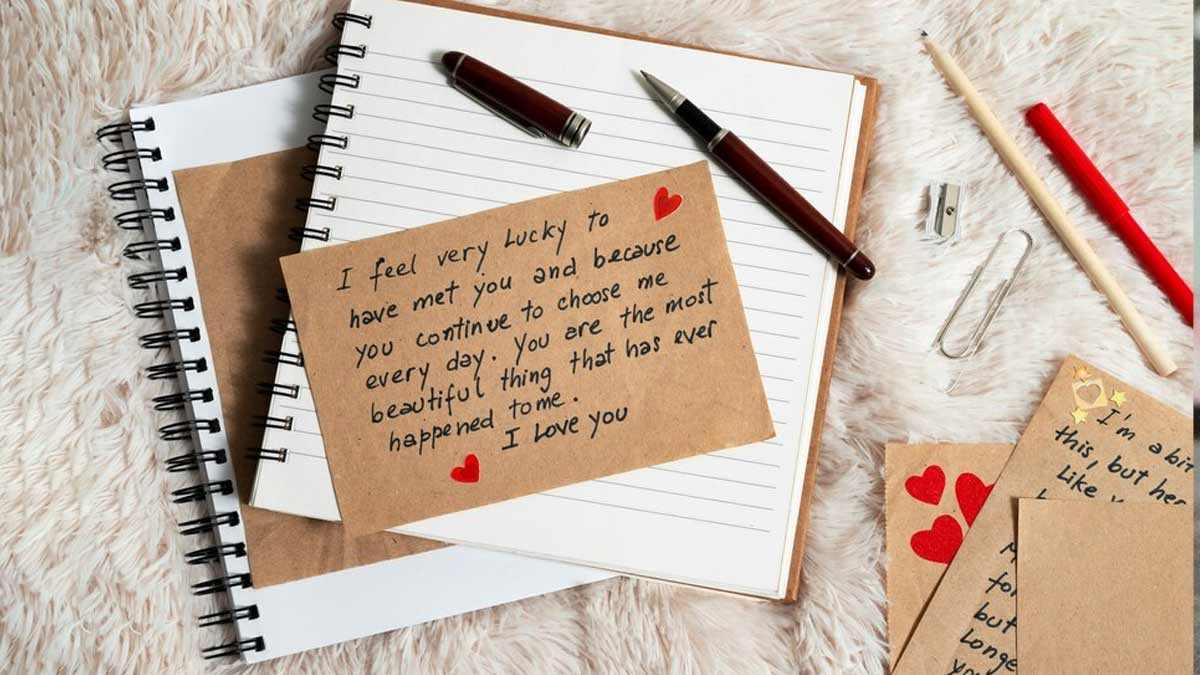 I feel very Lucky to
have met you and because
you continue to choose me
every day. You are the most
beautiful thing that has ever
happened to me.
I Love you
I'm a bit
this, but her
Like
but
Longe